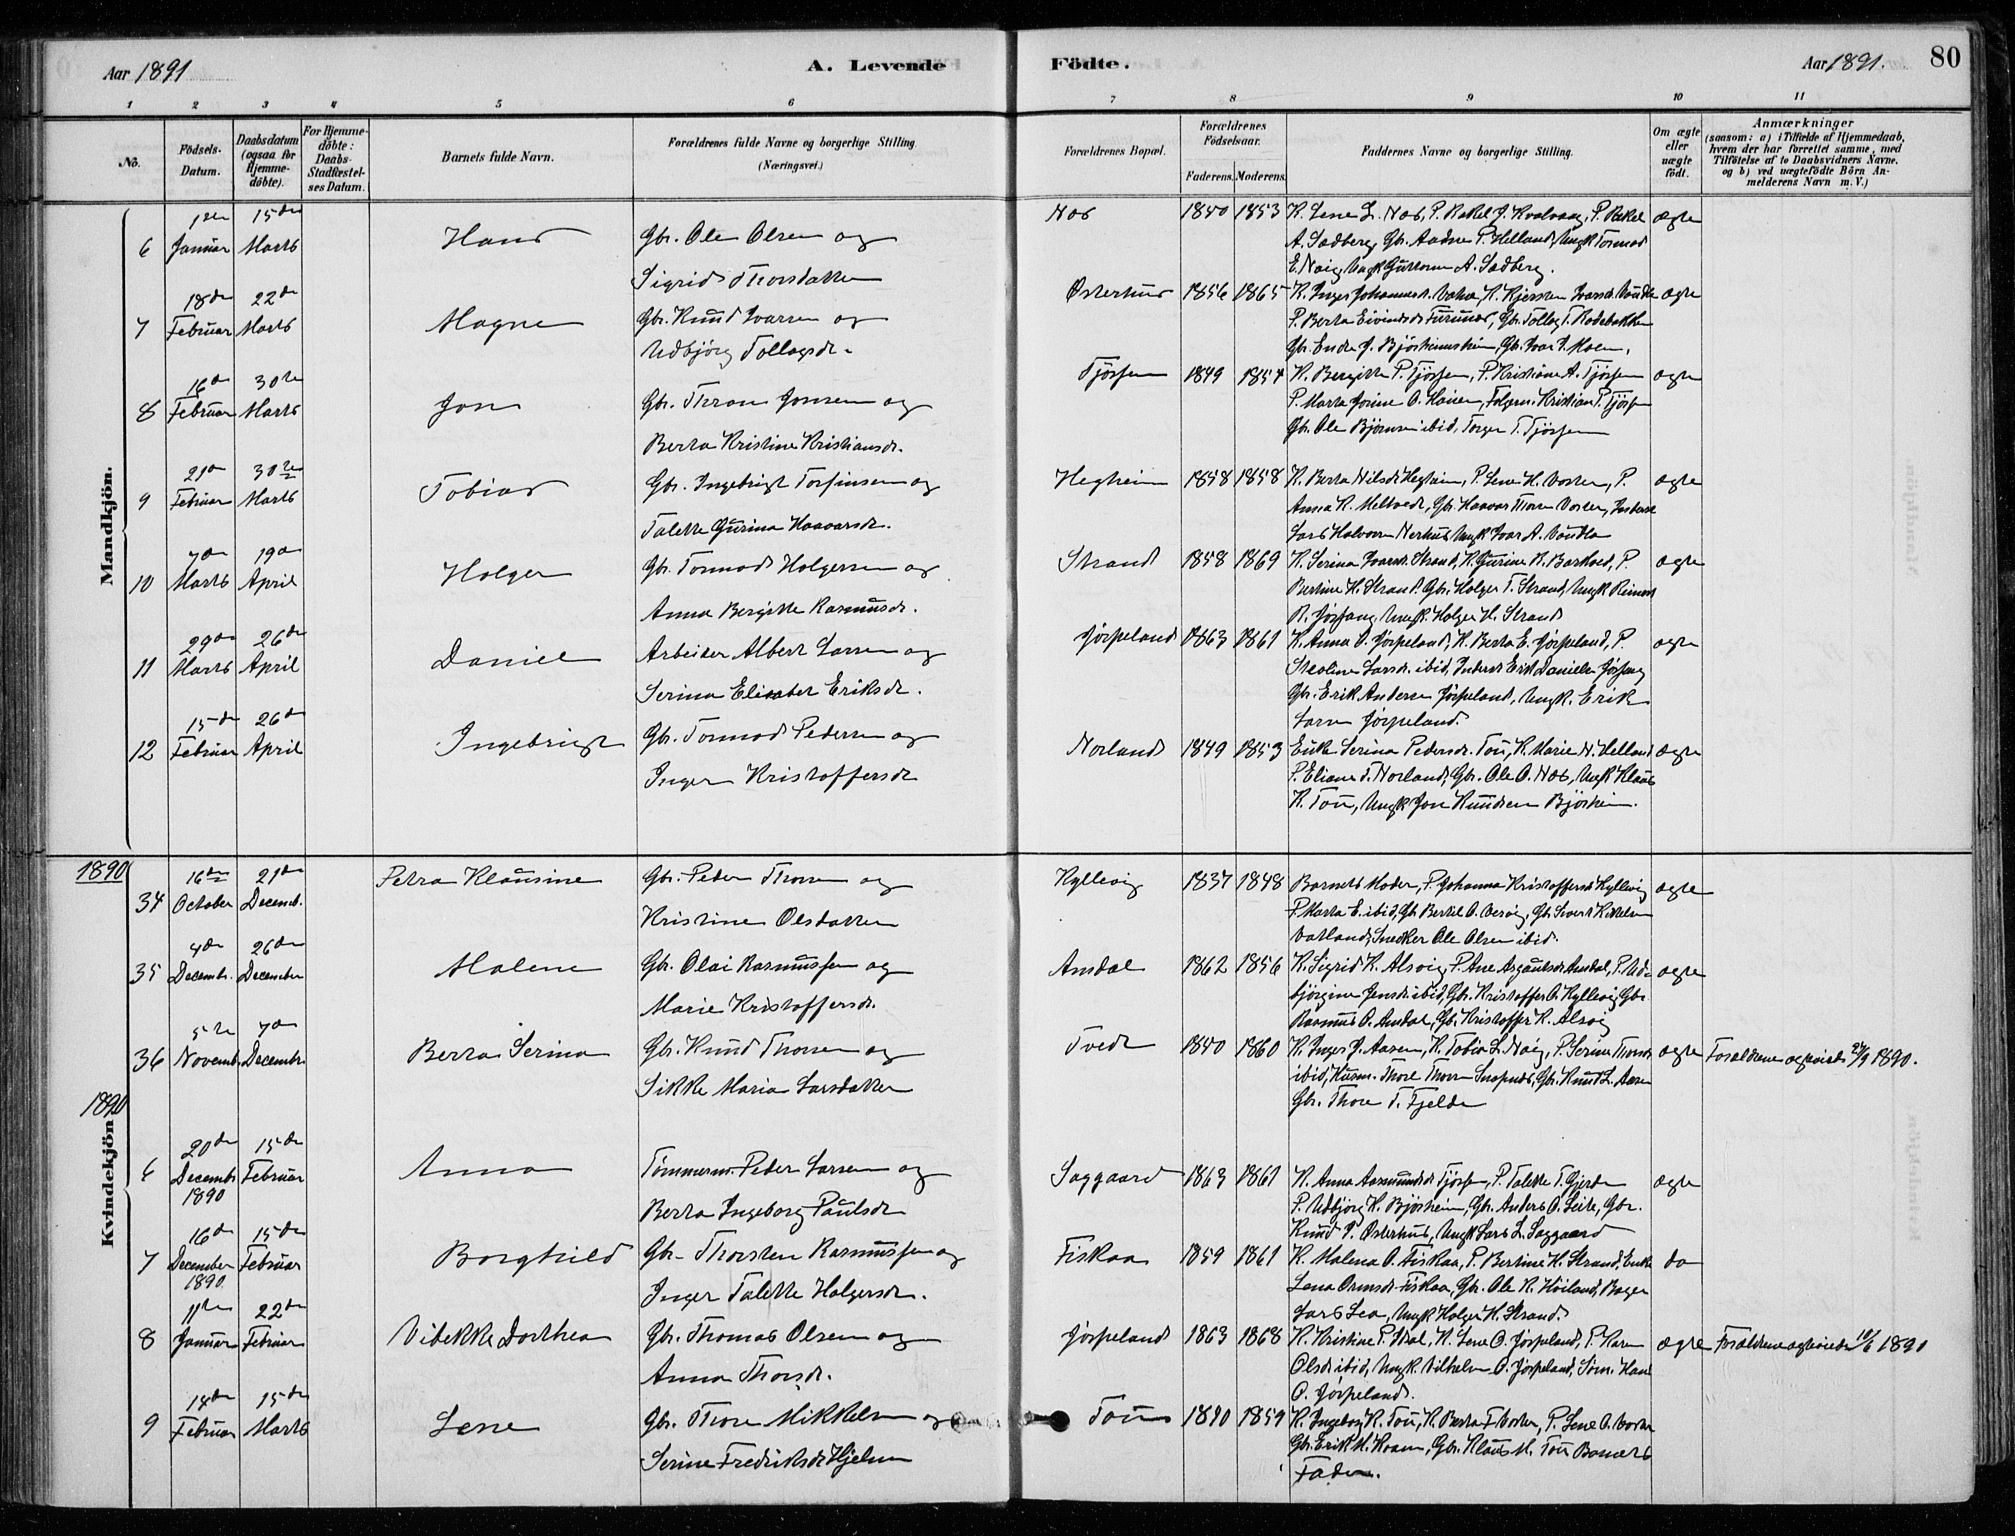 Aar 1891
A. Levende
Födte.
Aar 1891.
80
1 2 3 4 5 6 7 8 9 10 11
No.
Födsels-
Datum.
Daabsdatum
(ogsaa for
Hjemme-
döbte).
For Hjemme-
döbte:
Daabs-
Stadfæstel-
ses Datum.
Barnets fulde Navn.
Forældrenes fulde Navne og borgerlige Stilling
(Næringsvei.)
Forældrenes Bopæl.
Forældrenes
Födselsaar.
Faderens. Moderens.
Faddernes Navne og borgerlige Stilling.
Om ægte
eller
uægte
födt.
Anmærkninger
(saasom: a) i Tilfælde af Hjemmedaab,
hvem der har forrettet samme, med
Tilföielse af to Daabsvidners Navne,
og b) ved uægtefödte Börn An-
melderens Navn m. V.)
Mandkjön.
6 1ste Januar 15de Marts Hans Gbr. Ole Olsen og
Sigrid Thorsdatter
Nes 1850 1853 K. Lene L. Nes, P. Rakel J. Kvalvaag, P. Rakel
A. Sadberg, Gbr. Aadne P. Helland, Ungk Tormod
E. Noig, Ungk Guttorm A. Sadberg.
ægte
7 18de Februar 22de Marts Magne Gbr. Knud Ivarsen og
Udbjörg Tollagsdr.
Østerhus 1856 1865
P. Berta Eivindsdr Furunes, Gbr. Tollag T. Rødebakken
Gbr. Endre J. Bjørheimsheim, Gbr. Ivar I. Moen.
ægte
8 16de Februar 30te Marts Jon Gbr. Thron Jonsen og
Berta Kristine Kristiansdr.
Tjøsfem 1849 1854 K. Bergitte P. Tjøsfem, P. Kristiane A. Tjøsfem
Gbr. Ole Bjørnsen ibid, Torger T. Tjøsfem
ægte
9 21de Februar 30te Marts Tobias Gbr. Ingebrigt Torfinsen og
Talette Gurina Haavarsdr.
Hegheim 1858 1858 K. Berta Nilsdr Hegheim, P. Lene H. Voster, P.
Anna K. Meltvedt, Gbr. Haavar Thorsen Voster, Inderst
Lars Halvorsen Nerhus, Ungk Ivar A. Vaudla
ægte
10 7de Marts 19de April Holger Gbr. Tormod Holgersen og
Anna Bergitte Rasmusdr.
Strand 1858 1869 K. Serina Ivarsdr. Strand, K. Gurine R. Barkved, P.
Bertine H. Strand, Gbr. Holger T. Strand, Ungk Reinert
R. Jøssang, Ungk. Holger H. Strand
ægte
11 29de Marts 26de April Daniel Arbeider Albert Larsen og
Serina Elisabet Eriksdr.
Jørpeland 1863 1861 K. Anna O. Jørpeland, K. Berta E. Jørpeland, P.
Steoline Larsdr. ibid, Inderst Erik Danielsen Jøssang
Gbr. Erik Andersen Jørpeland, Ungk. Erik
Larsen Jørpeland.
ægte
12 15de Februar 26de April Ingebrigt Gbr. Tormod Pedersen og
Inger Kristoffersdr
Norland 1849 1853 Enke Serina Pedersdr. Tou, K. Marie N. Helland
P. Eliane T. Norland, Gbr. Ole O. Nes, Ungk Klaus
K. Tou, Ungk Jon Knudsen Bjørheim.
ægte
1890
34 16de October 21de Decemb. Petra Klausine Gbr. Peder Thorsen og
Kristine Olsdatter
Kyllevig 1837 1848 Barnets Moder, P. Johanna Kristoffersdr Kyllevig
P. Marta E. ibid, Gbr Bertil O. Versvig, Gbr Sivert Kittelsen
Vatland, Snedker Ole Olsen ibid.
ægte
35 4de Decembr. 26de December Malene Gbr. Olai Rasmussen og
Marie Kristoffersdr.
Amdal 1862 1856 K. Sigrid K. Alsvig, P. Ane Asgautsdr Amdal, P. Ud-
björgine Jensdr. ibid, Gbr. Kristoffer O. Kyllevig, Gbr.
Rasmus O. Amdal, Gbr. Kristoffer K. Alsvig
ægte
36 5te Novemb. 7de Decembr. Berta Serina Gbr. Knud Thorsen og
Sikke Maria Larsdatter
Tvedt 1850 1860 K. Inger J. Aasen, K. Tobia L. Noig, P. Serine Thorsdr
ibid, Husm. Thore Thorsen Snapnes, Gbr. Knud L. Aasen
Gbr. Thore T. Fjelde
ægte Forældrene ægteviede 27/9 1890.
1890
Kvindekjön
6 20de Decembr 1890 15de Februar Anna Tömmerm. Peder Larsen og
Berta Ingeborg Paulsdr
Saggaard 1863 1861 K. Anna Aasmundsdr Tjøsfem, P. Talette T. Gjerde
P. Udbjørg K. Bjørheim, Gbr. Anders O. Leite, Gbr.
Knud P. Østerhus, Ungk Lars L. Saggaard
ægte
7 16de December 1890 15de Februar Borghild Gbr. Thorsten Rasmussen og
Inger Talette Holgersdr.
Fiskaa 1859 1861 K. Malena O. Fiskaa, P. Bertine H. Strand, Enke
Lena Ormsdr Fiskaa, Gbr. Ole K. Høiland, Bager
Lars Lea, Ungk Holger H. Strand.
do
8 11te Januar 22de Februar Vibekke Dorthea Gbr. Thomas Olsen og
Anna Thorsdr.
Jørpeland 1863 1868 K. Kristine P. Idal, K. Lene O. Jørpeland, P. Karen
Olsdr ibid, Ungk. Vilhelm O. Jørpeland, Søm. Hans
O. Jørpeland.
ægte Forældrene ægteviede 10/6 1890
9 14de Februar 15de Marts Lene Gbr. Thore Mikkelsen og
Serine Fredriksdr Hjelm
Tou 1850 1859 K. Ingeborg K. Tou, K. Berta F. Voster, P. Lene O. Voster
Gbr. Erik M. Kvam, Gbr. Klaus M. Tou Barnets
Fader.